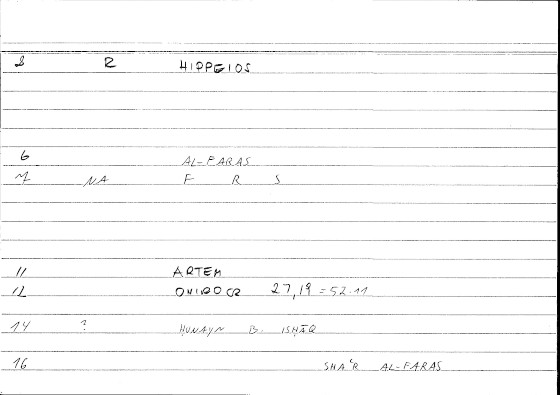 8 R HIPPEIOS
6 AL-FARAS
7 NA F R S
11 ARTEM
12 ONIROCR 27,19 = 52.11
14 ? ḤUNAYN B. ISḤĀQ
16 SHAʿR AL-FARAS